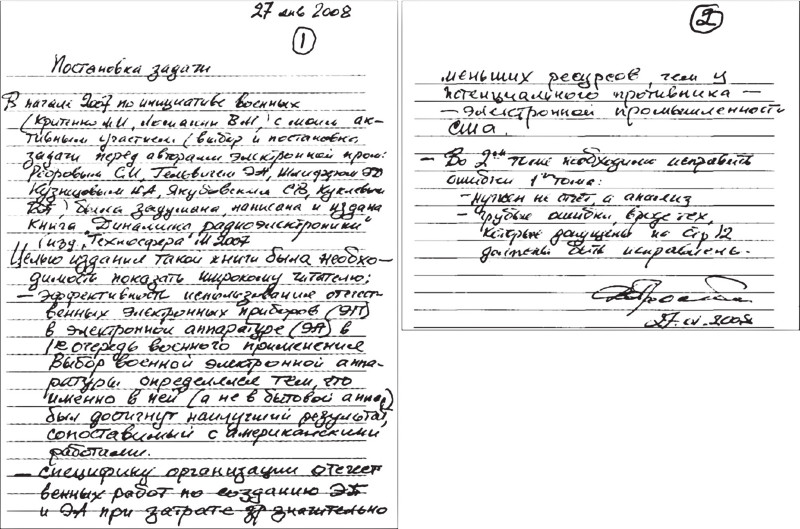 27 янв 2008
1
Постановка задачи
В начале 2007 по инициативе военных
(Критенко М.И, Лопатин В.М, с моим ак-
тивным участием (выбор и постановка
задачи перед авторами электронной пром:
Федоровым С.И,
Кузнецовым И.А, Якубовским С.В,
была задумана, написана и издана
книга "Динамика радиоэлектроники"
(изд. "Техносфера" М 2007
Целью издания такой книги была необхо-
димость показать широкому читателю:
— Эффективность использования отечест-
венных электронных приборов (ЭП)
в электронной аппаратуре (ЭА) в
1ю очередь военного применения
Выбор военной электронной аппа-
ратуры определялся тем, что
именно в ней (а не в бытовой аппар)
был достигнут наилучший результат,
сопоставимый с американскими
работами.
— специфику организации отечест
венных работ по созданию ЭП
и ЭА при затрате значительно
2
меньших ресурсов, чем у
потенциального противника —
— электронной промышленности
США.
— Во 2ом томе необходимо исправить
ошибки 1го тома:
— нужен не отчёт, а анализ
— грубые ошибки, вроде тех,
которые допущены на стр 12
должны быть исправлены.